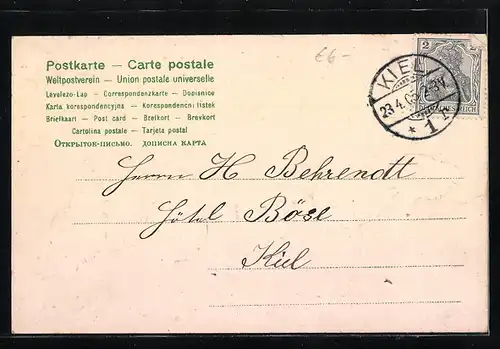 Postkarte — Carte postale
Weltpostverein — Union postale universelle
Levelezo-Lap — Correspondenzkarte — Dopisnice
Karta korespondencyjna — Korespondenční lístek
Briefkaart — Post card — Brefkort — Brevkort
Cartolina postale — Tarjeta postal
ОТКРЫТОЕ-ПИСЬМО. ДОПИСНА КАРТА
€6-
2
KIEL
23.4.
* 1
Herrn H Behrendtt
Hôtel Böse
Kiel